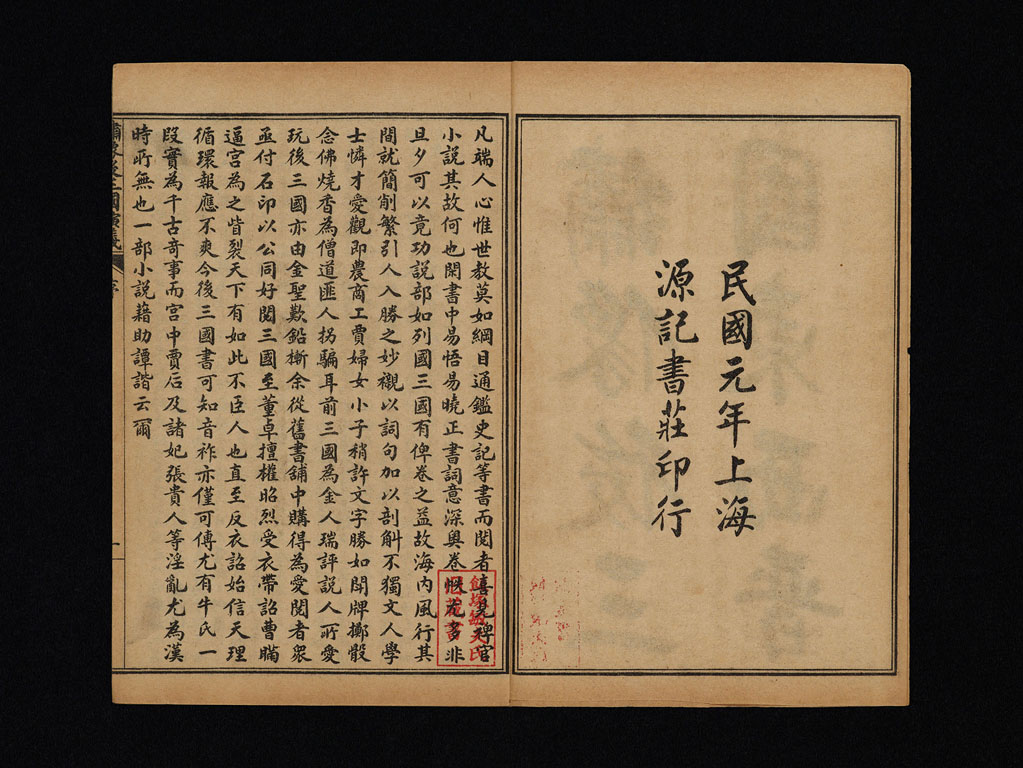 民國元年上海
源記書莊印行
凡端人心惟世教莫如綱目通鑑史記等書而閱者喜見稗官
小說其故何也閑書中易悟易曉正書詞意深奧卷帙尤多非
旦夕可以竟功說部如列國三國有俾卷之益故海內風行其
間就簡削繁引人入勝之妙襯以詞句加以剖斛不獨文人學
士憐才愛觀即農商工賈婦女小子稍許文字勝如鬥牌擲骰
念佛燒香為僧道匪人拐騙耳前三國為金人瑞評說人所愛
玩後三國亦由金聖歎鉛槧余從舊書舖中購得為愛閱者眾
亟付石印以公同好閱三國至董卓擅權昭烈受衣帶詔曹瞞
逼宮為之眥裂天下有如此不臣人也直至反衣詔始信天理
循環報應不爽今後三國書可知音祚亦僅可傳尤有牛氏一
段實為千古奇事而宮中賈后及諸妃張貴人等淫亂尤為漢
時所無也一部小說藉助譚諧云爾
繡像後三國演義 序 一